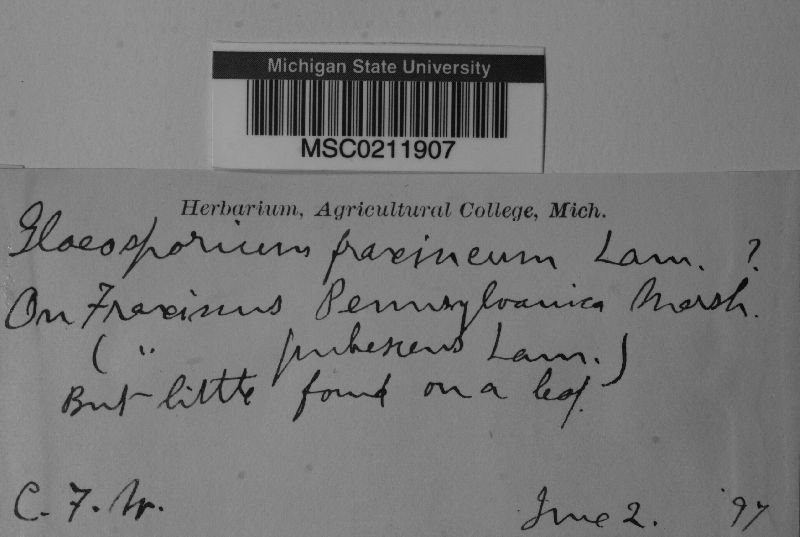 Michigan State University
MSC0211907
Herbarium, Agricultural College, Mich.
Gloeosporium fraxineum Lam. ?
On Fraxinus Pennsylvanica Marsh.
( " pubescens Lam.)
But little found on a leaf.
C. F. W.
June 2. '97